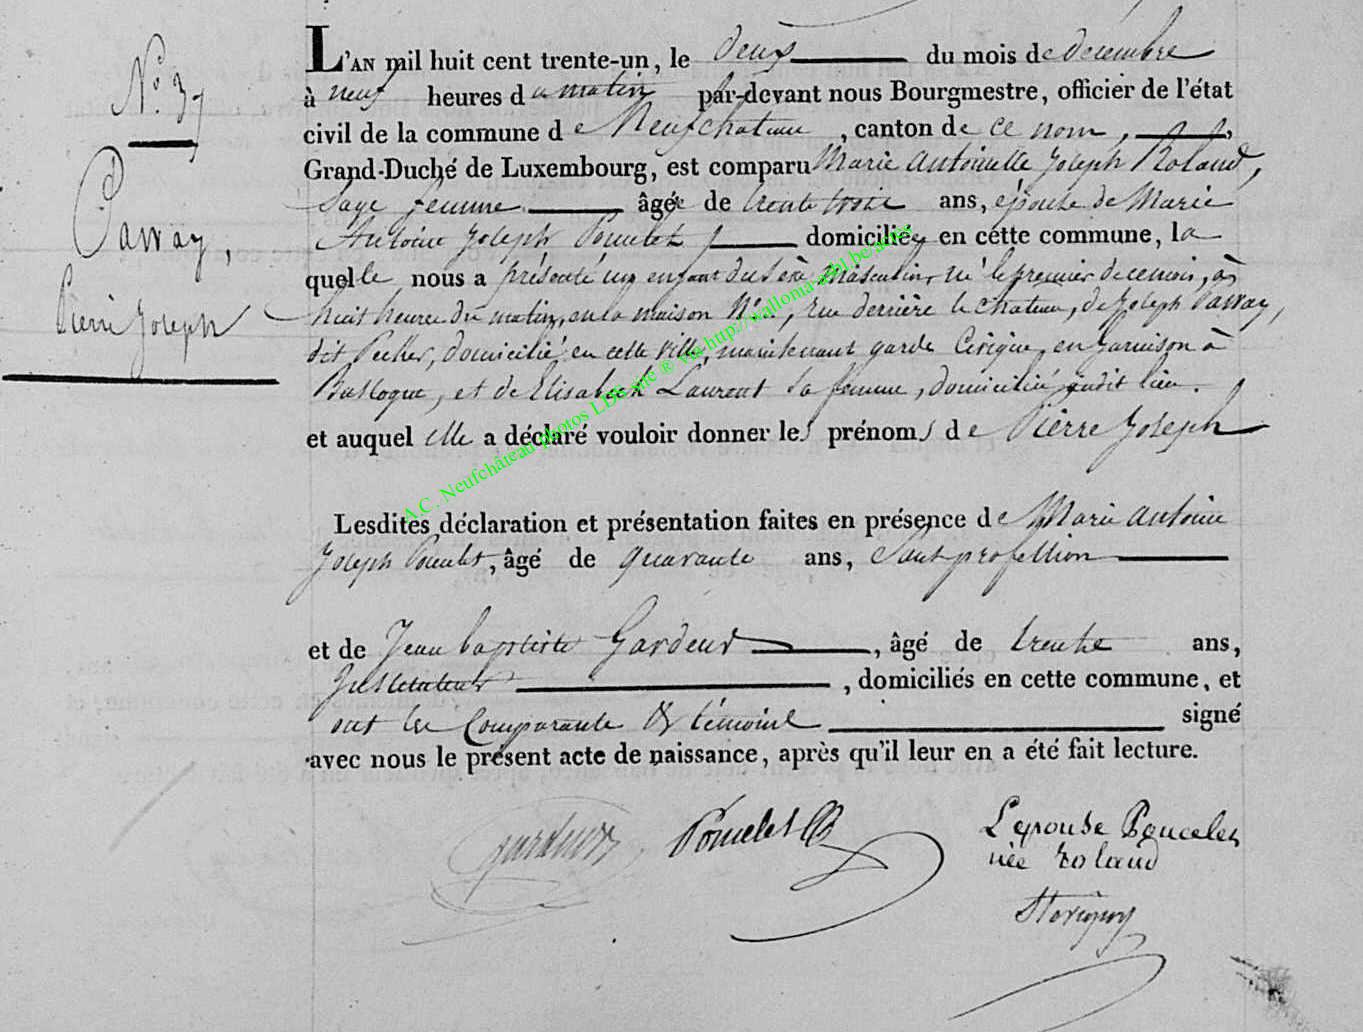 N° 37
Paway,
Pierre Joseph
L'AN mil huit cent trente-un, le deux du mois de décembre
à neuf heures du matin par-devant nous Bourgmestre, officier de l'état
civil de la commune de Neufchateau, canton de ce nom,
Grand-Duché de Luxembourg, est comparu Marie Antoinette Joseph Roland,
Sage femme âgée de trente trois ans, épouse de Marie
Antoine Joseph Poncelet domiciliée en cette commune, la
quelle nous a présenté un enfant du sexe masculin, né le premier de ce mois, à
huit heures du matin, en la maison N°, rue derrière le chateau, de Joseph Paway,
dit, domicilié en cette ville, maintenant garde Civique, en garnison à
Bastogne, et de Elisabeth Laurent sa femme, domiciliée audit lieu.
et auquel elle a déclaré vouloir donner les prénoms de Pierre Joseph
Lesdites déclaration et présentation faites en présence de Marie Antoine
Joseph Poncelet, âgé de quarante ans, Sans profession
et de Jean baptiste Gardeur, âgé de trente ans,
Instituteur, domiciliés en cette commune, et
ont les Comparante & témoins signé
avec nous le présent acte de naissance, après qu'il leur en a été fait lecture.
Poncelet
L'epouse Poncelet
née roland
A.C. Neufchâteau photos LDS site ® via http://wallonia-asbl.be/actes